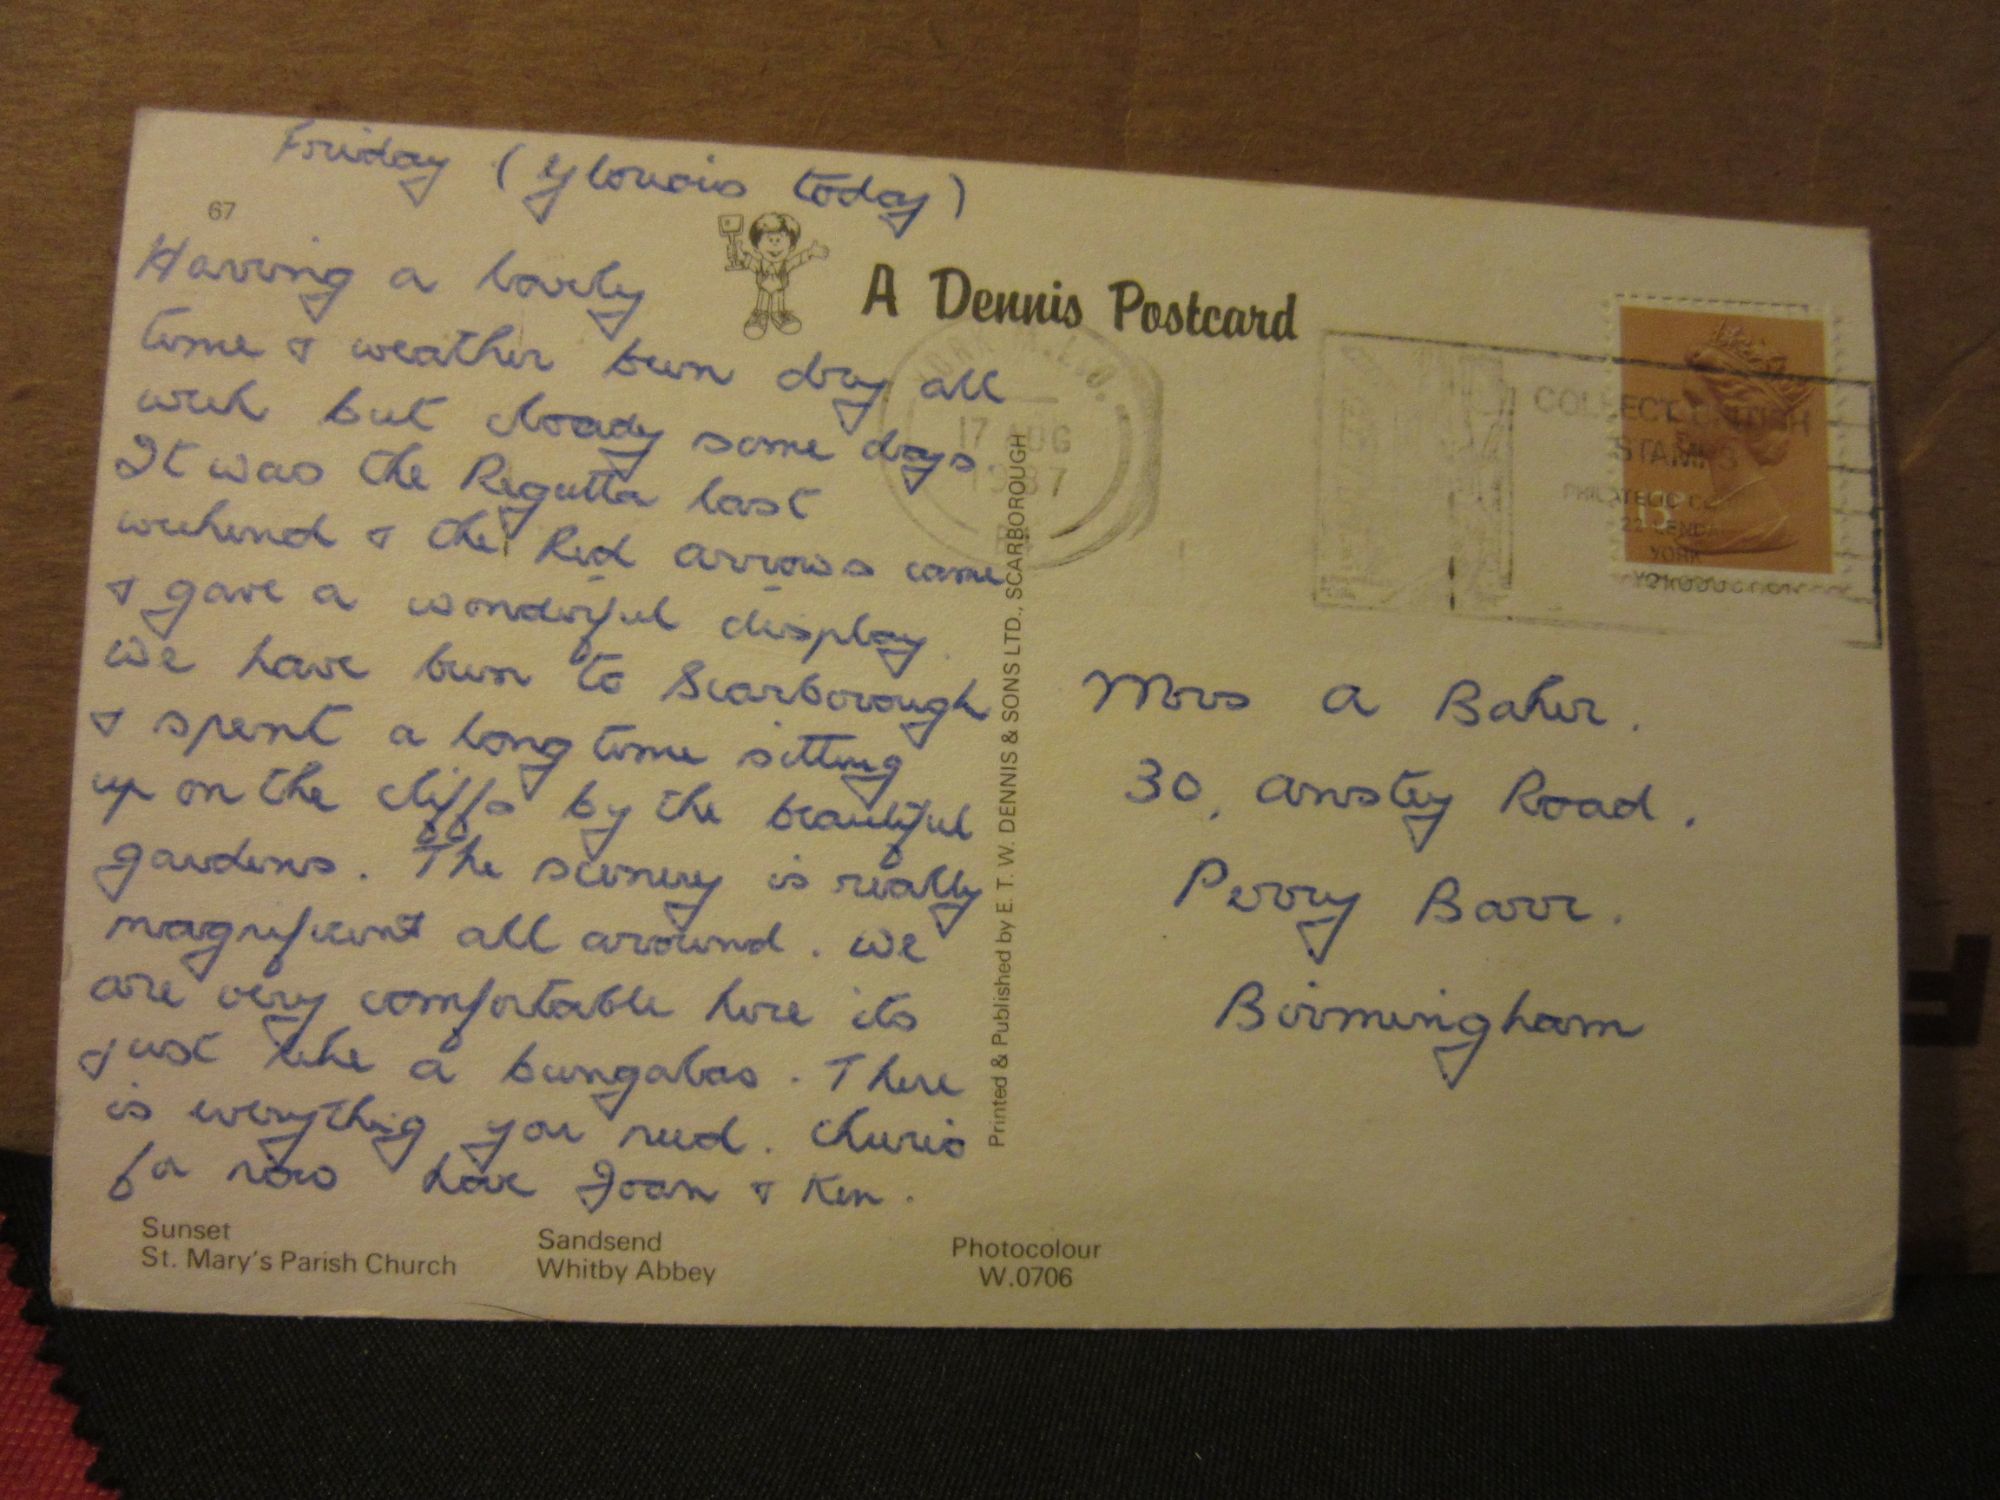 Friday (Glorious today)
67
Having a lovely
time & weather been dry all
week but cloudy some days
It was the Regatta last
weekend & the Red arrows came
& gave a wonderful display.
We have been to Scarborough
& spent a long time sitting
up on the cliffs by the beautiful
gardens. The scenery is really
magnificent all around. We
are very comfortable here its
just like a bungalao. There
is everything you need. Cheerio
for now love Joan & Ken.
Sunset
St. Mary's Parish Church
Sandsend
Whitby Abbey
Photocolour
W.0706
A Dennis Postcard
Printed & Published by E. T. W. DENNIS & SONS LTD., SCARBOROUGH
YORK M.L.O.
17 AUG
1987
COLLECT BRITISH
STAMPS
PHILATELIC
22
YORK
13
Mrs A Baker.
30, Anstey Road.
Perry Barr.
Birmingham